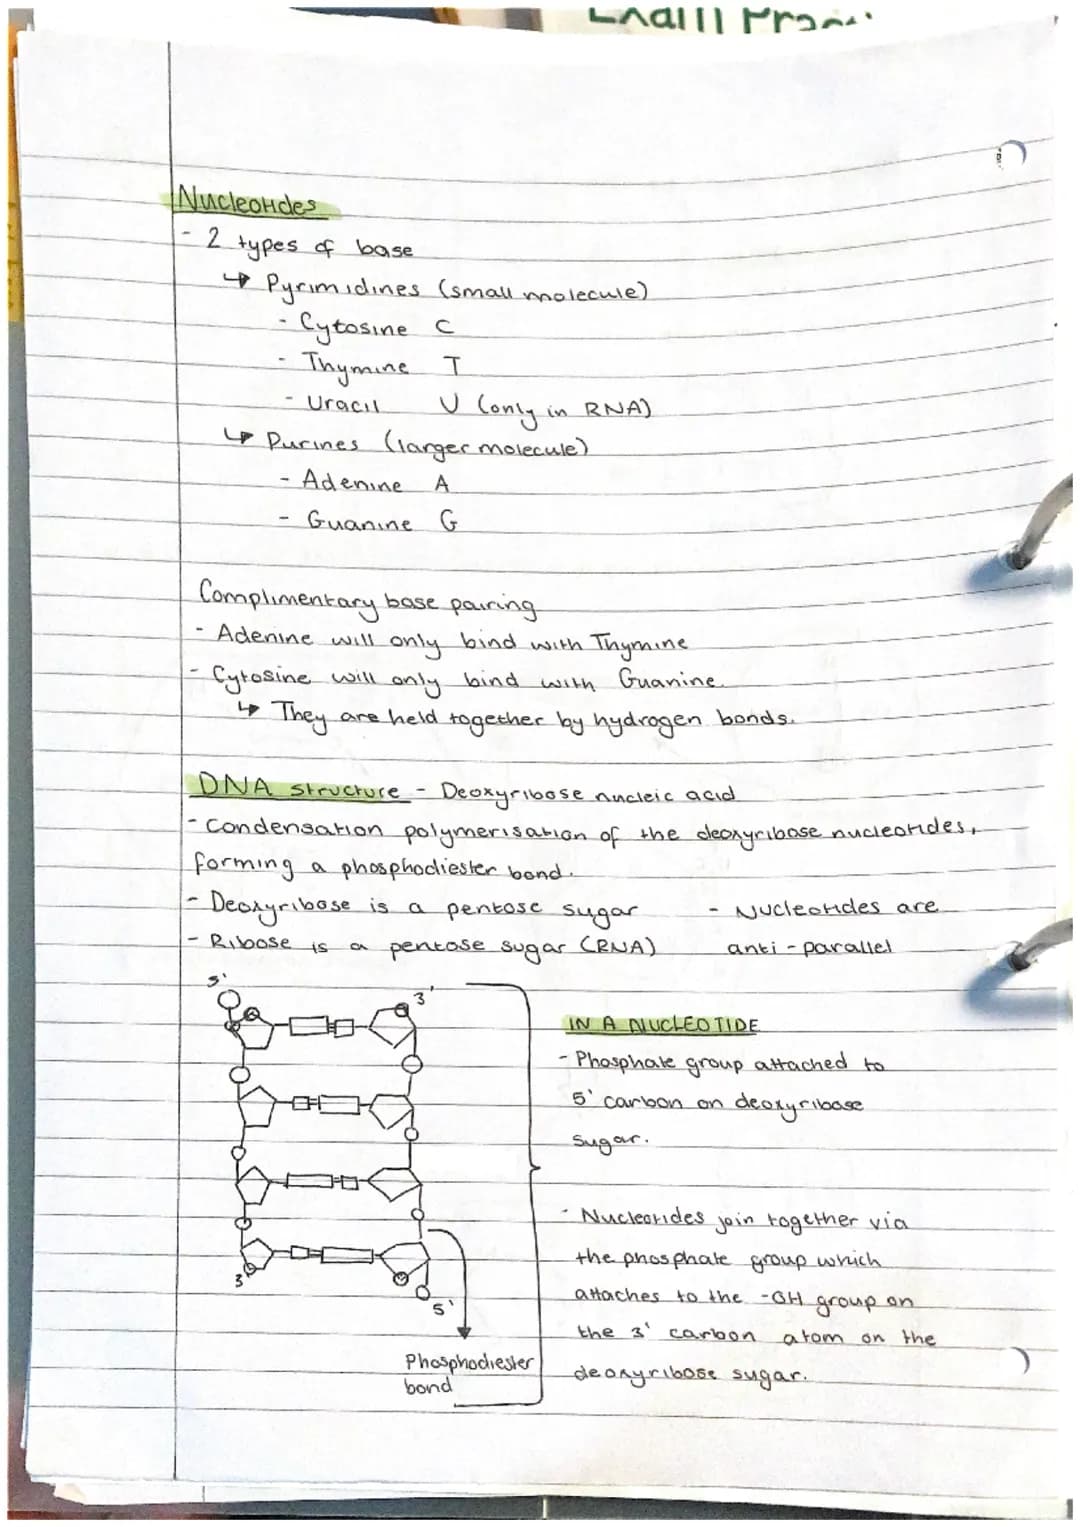 Exam Prac
Nucleotides
- 2 types of base
↳ Pyrimidines (small molecule)
- Cytosine C
- Thymine T
- Uracil U (only in RNA)
↳ Purines (larger molecule)
- Adenine A
- Guanine G
Complimentary base pairing
- Adenine will only bind with Thymine
- Cytosine will only bind with Guanine.
↳ They are held together by hydrogen bonds.
DNA structure - Deoxyribose nucleic acid
- Condensation polymerisation of the deoxyribose nucleotides,
forming a phosphodiester bond.
- Deoxyribose is a pentose sugar
- Ribose is a pentose sugar (RNA)
- Nucleotides are
anti-parallel
5'
3'
3'
5'
Phosphodiester
bond
IN A NUCLEOTIDE
- Phosphate group attached to
5' carbon on deoxyribose
sugar.
- Nucleotides join together via
the phosphate group which
attaches to the -OH group on
the 3' carbon atom on the
deoxyribose sugar.